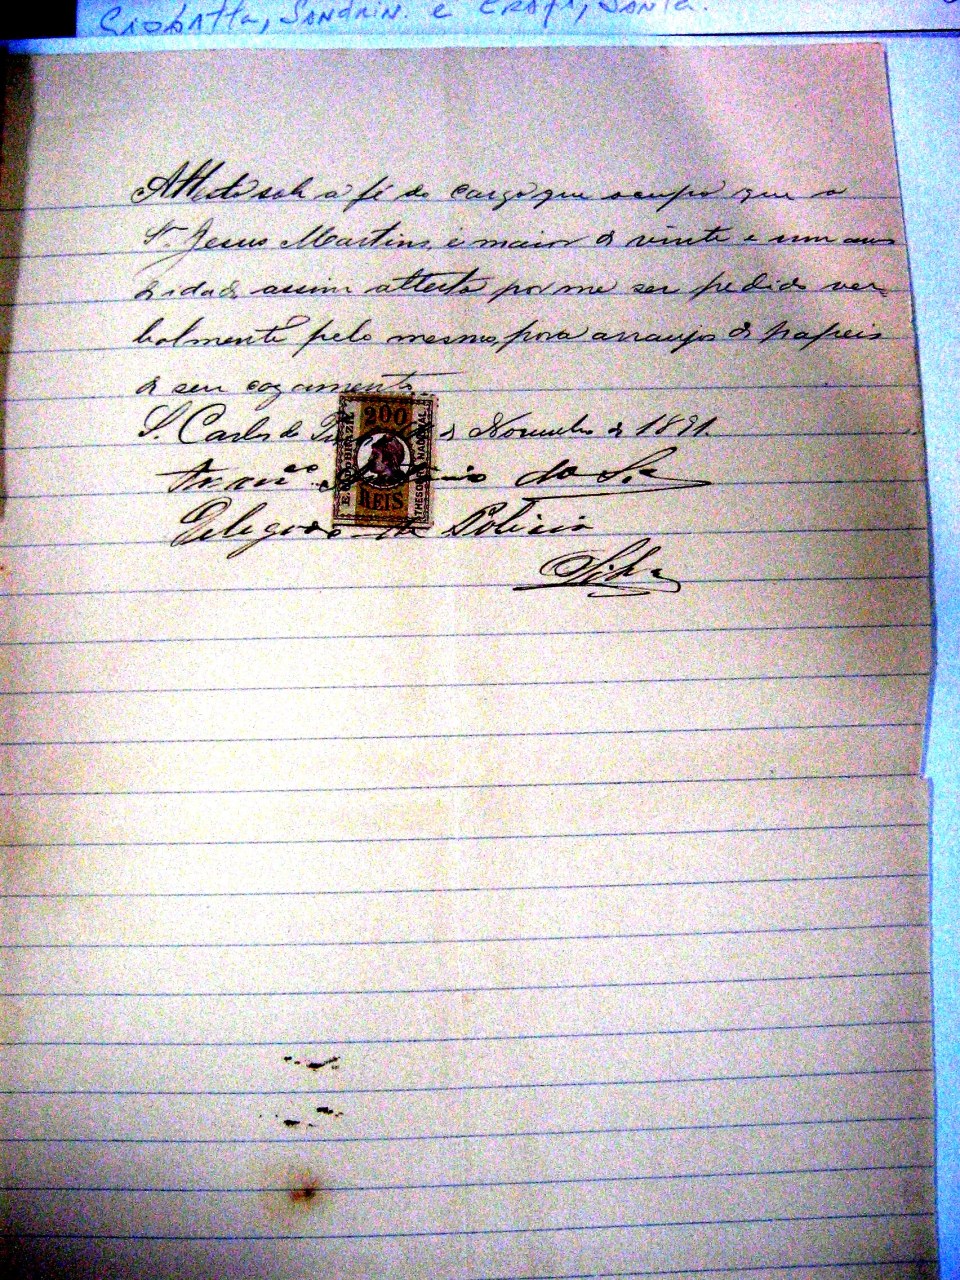 Sandrin. e
Attesto sob a fé do cargo que occupo que o
Sr. Jesus Martins, é maior de vinte e um annos
de idade, assim attesto por me ser pedido ver-
balmente pelo mesmo, para arranjos de papeis
de seu cazamento.
S. Carlos do de Novembro de 1891.
da Sa
Delegado de Policia
Silva
200
REIS
THESOURO NACIONAL